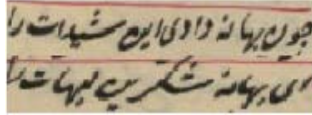 چون بهانه دادی این شیدات را
ای بهانه شکرین لبهات را